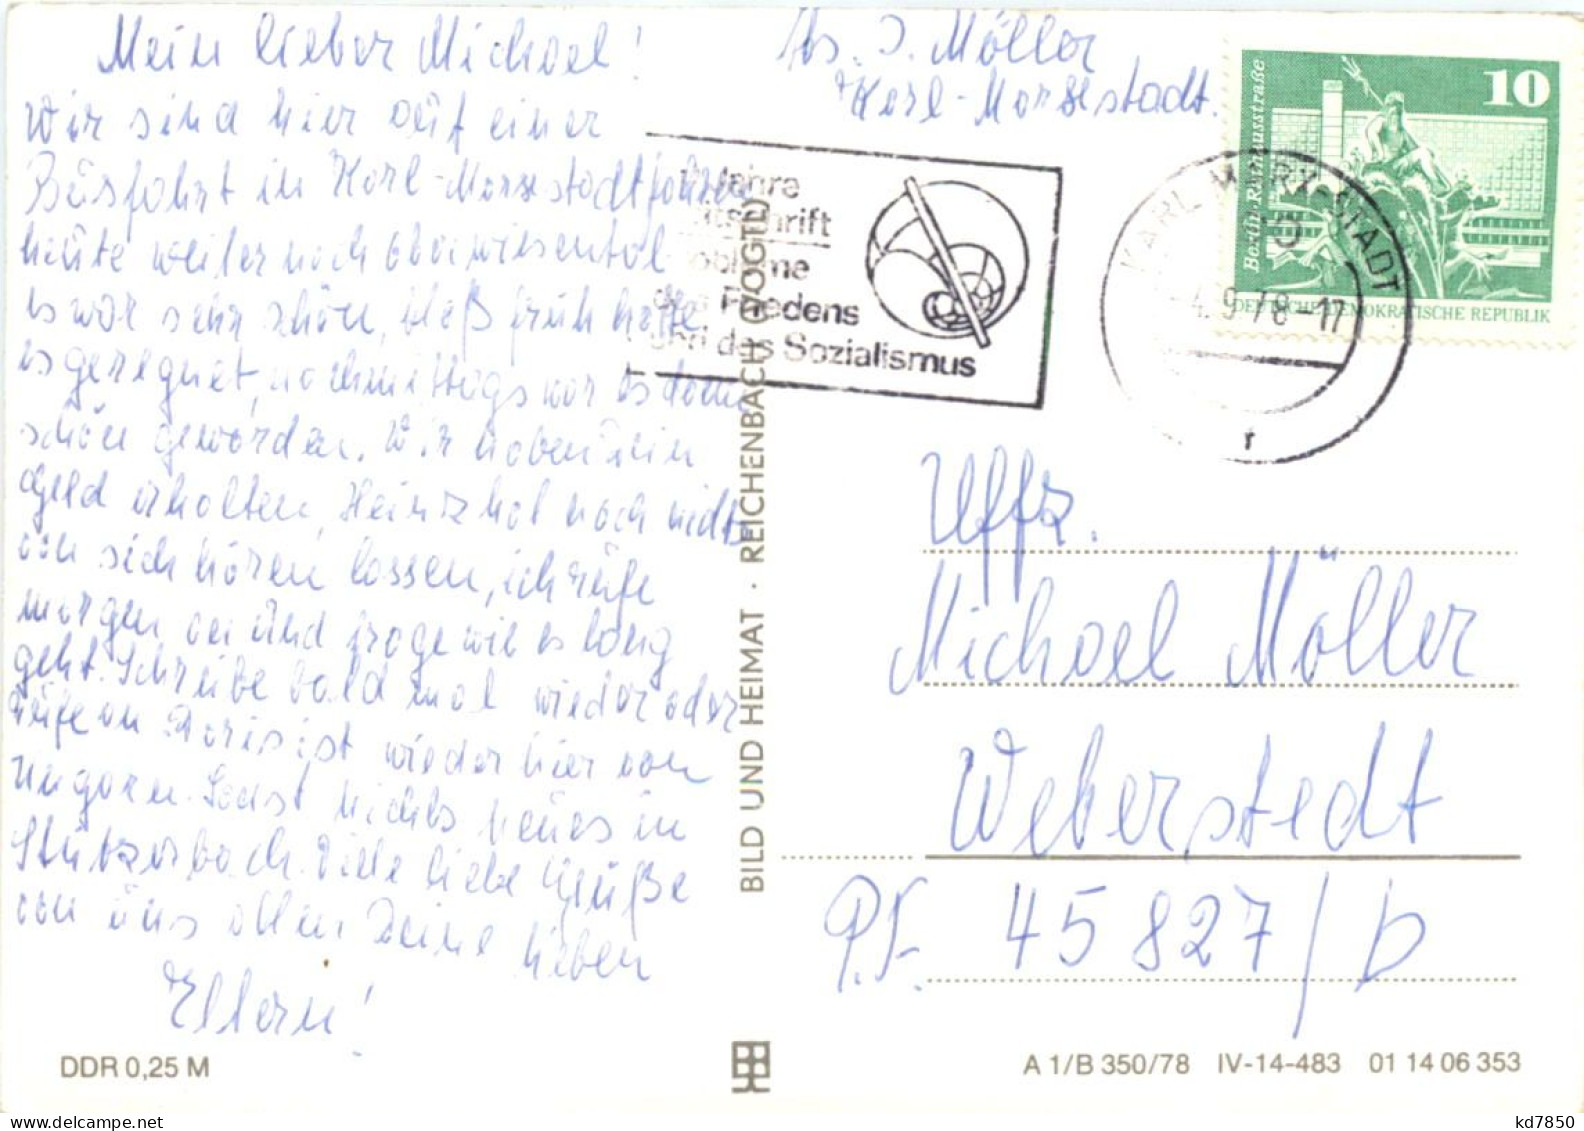 Mein lieber Michael!
Wir sind hier auf einer
Busfahrt in Karl-Marxstadt fahren
heute weiter nach Oberwiesental
es war sehr schön, bloß früh hatte
es geregnet, nachmittags war es dann
schön geworden. Wir haben Dein
Geld erhalten, Heinz hat noch nichts
von sich hören lassen, ich rufe
morgen an und frage wie es lang
geht. Schreibe bald mal wieder oder
rufe an Doris ist wieder hier von
Ungarn. Sonst nichts neues in
Stützerbach. Viele liebe Grüße
von uns allen Deine lieben
Eltern!
DDR 0,25 M
BILD UND HEIMAT · REICHENBACH (VOGTL)
Abs. I. Möller
Karl-Marxstadt.
Jahre
Zeitschrift
Probleme
des Friedens
und des Sozialismus
KARL-MARX-STADT
4.9.78-17
r
10
Berlin-Rathausstraße
DEUTSCHE DEMOKRATISCHE REPUBLIK
Uffz.
Michael Möller
Weberstedt
P.F. 45 827/D
A 1/B 350/78 IV-14-483 01 14 06 353
kd7850